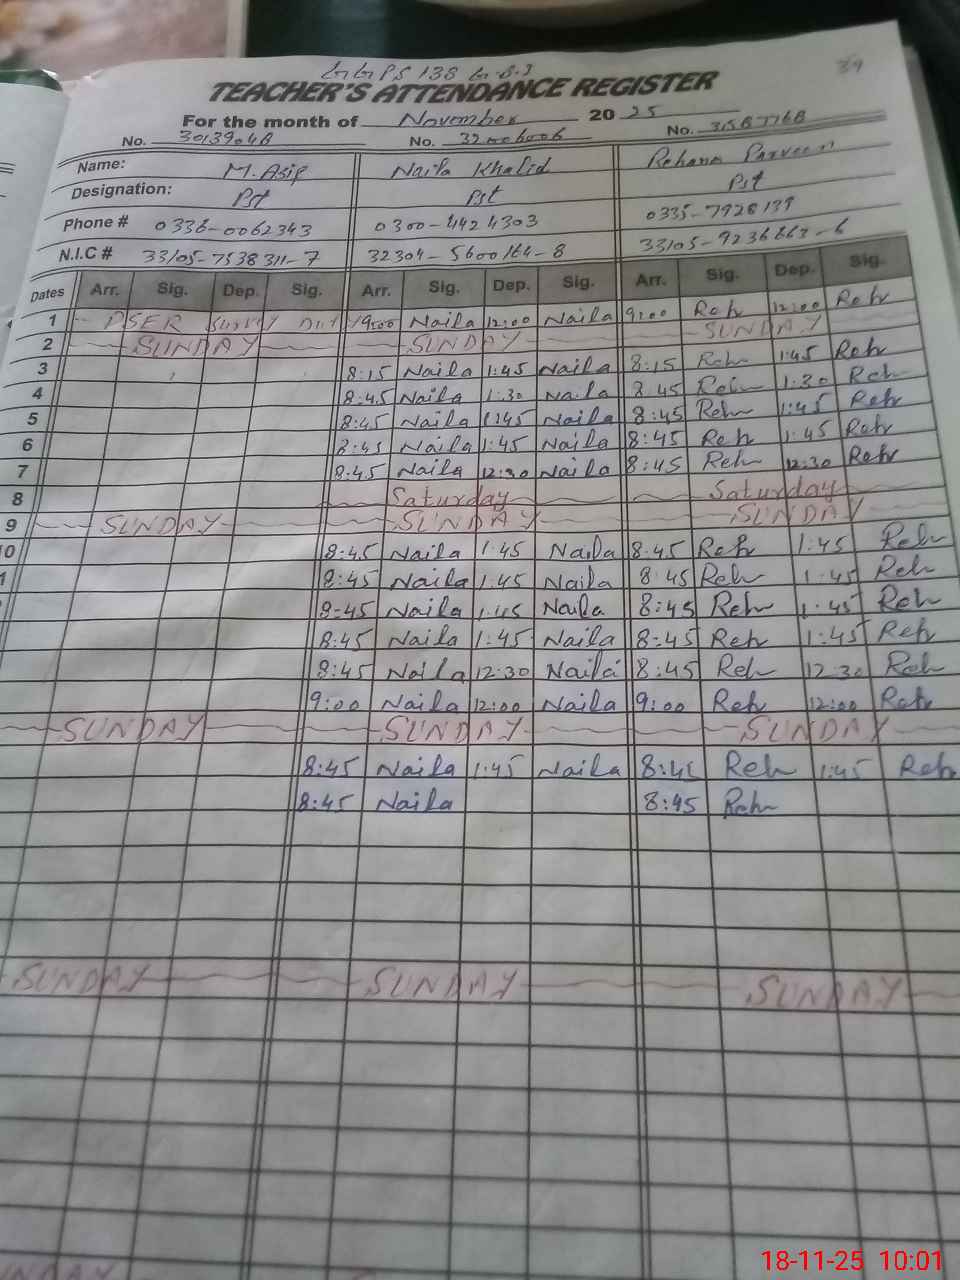 GGPS 138 G.B.3
39
TEACHER'S ATTENDANCE REGISTER
For the month of November 2025
No. 30139048 No. 32006006 No. 31587768
Name: M. Asif Naila Khalid Rehana Parveen
Designation: Pst Pst Pst
Phone # 0336-0062343 0300-4424303 0335-7928139
N.I.C # 33105-7538311-7 32304-5600164-8 33105-9236863-6
Dates Arr. Sig. Dep. Sig. Arr. Sig. Dep. Sig. Arr. Sig. Dep. Sig.
1 PSER Survey Duty 9:00 Naila 12:00 Naila 9:00 Reh 12:00 Reh
2 SUNDAY SUNDAY SUNDAY
3 8:15 Naila 1:45 Naila 8:15 Reh 1:45 Reh
4 8:45 Naila 1:30 Naila 8:45 Reh 1:30 Reh
5 8:45 Naila 1:45 Naila 8:45 Reh 1:45 Reh
6 8:45 Naila 1:45 Naila 8:45 Reh 1:45 Reh
7 8:45 Naila 12:30 Naila 8:45 Reh 12:30 Reh
8 Saturday Saturday
9 SUNDAY SUNDAY SUNDAY
0 8:45 Naila 1:45 Naila 8:45 Reh 1:45 Reh
8:45 Naila 1:45 Naila 8:45 Reh 1:45 Reh
8:45 Naila 1:45 Naila 8:45 Reh 1:45 Reh
8:45 Naila 1:45 Naila 8:45 Reh 1:45 Reh
8:45 Naila 12:30 Naila 8:45 Reh 12:30 Reh
9:00 Naila 12:00 Naila 9:00 Reh 12:00 Reh
SUNDAY SUNDAY SUNDAY
8:45 Naila 1:45 Naila 8:45 Reh 1:45 Reh
8:45 Naila 8:45 Reh
SUNDAY SUNDAY SUNDAY
18-11-25 10:01